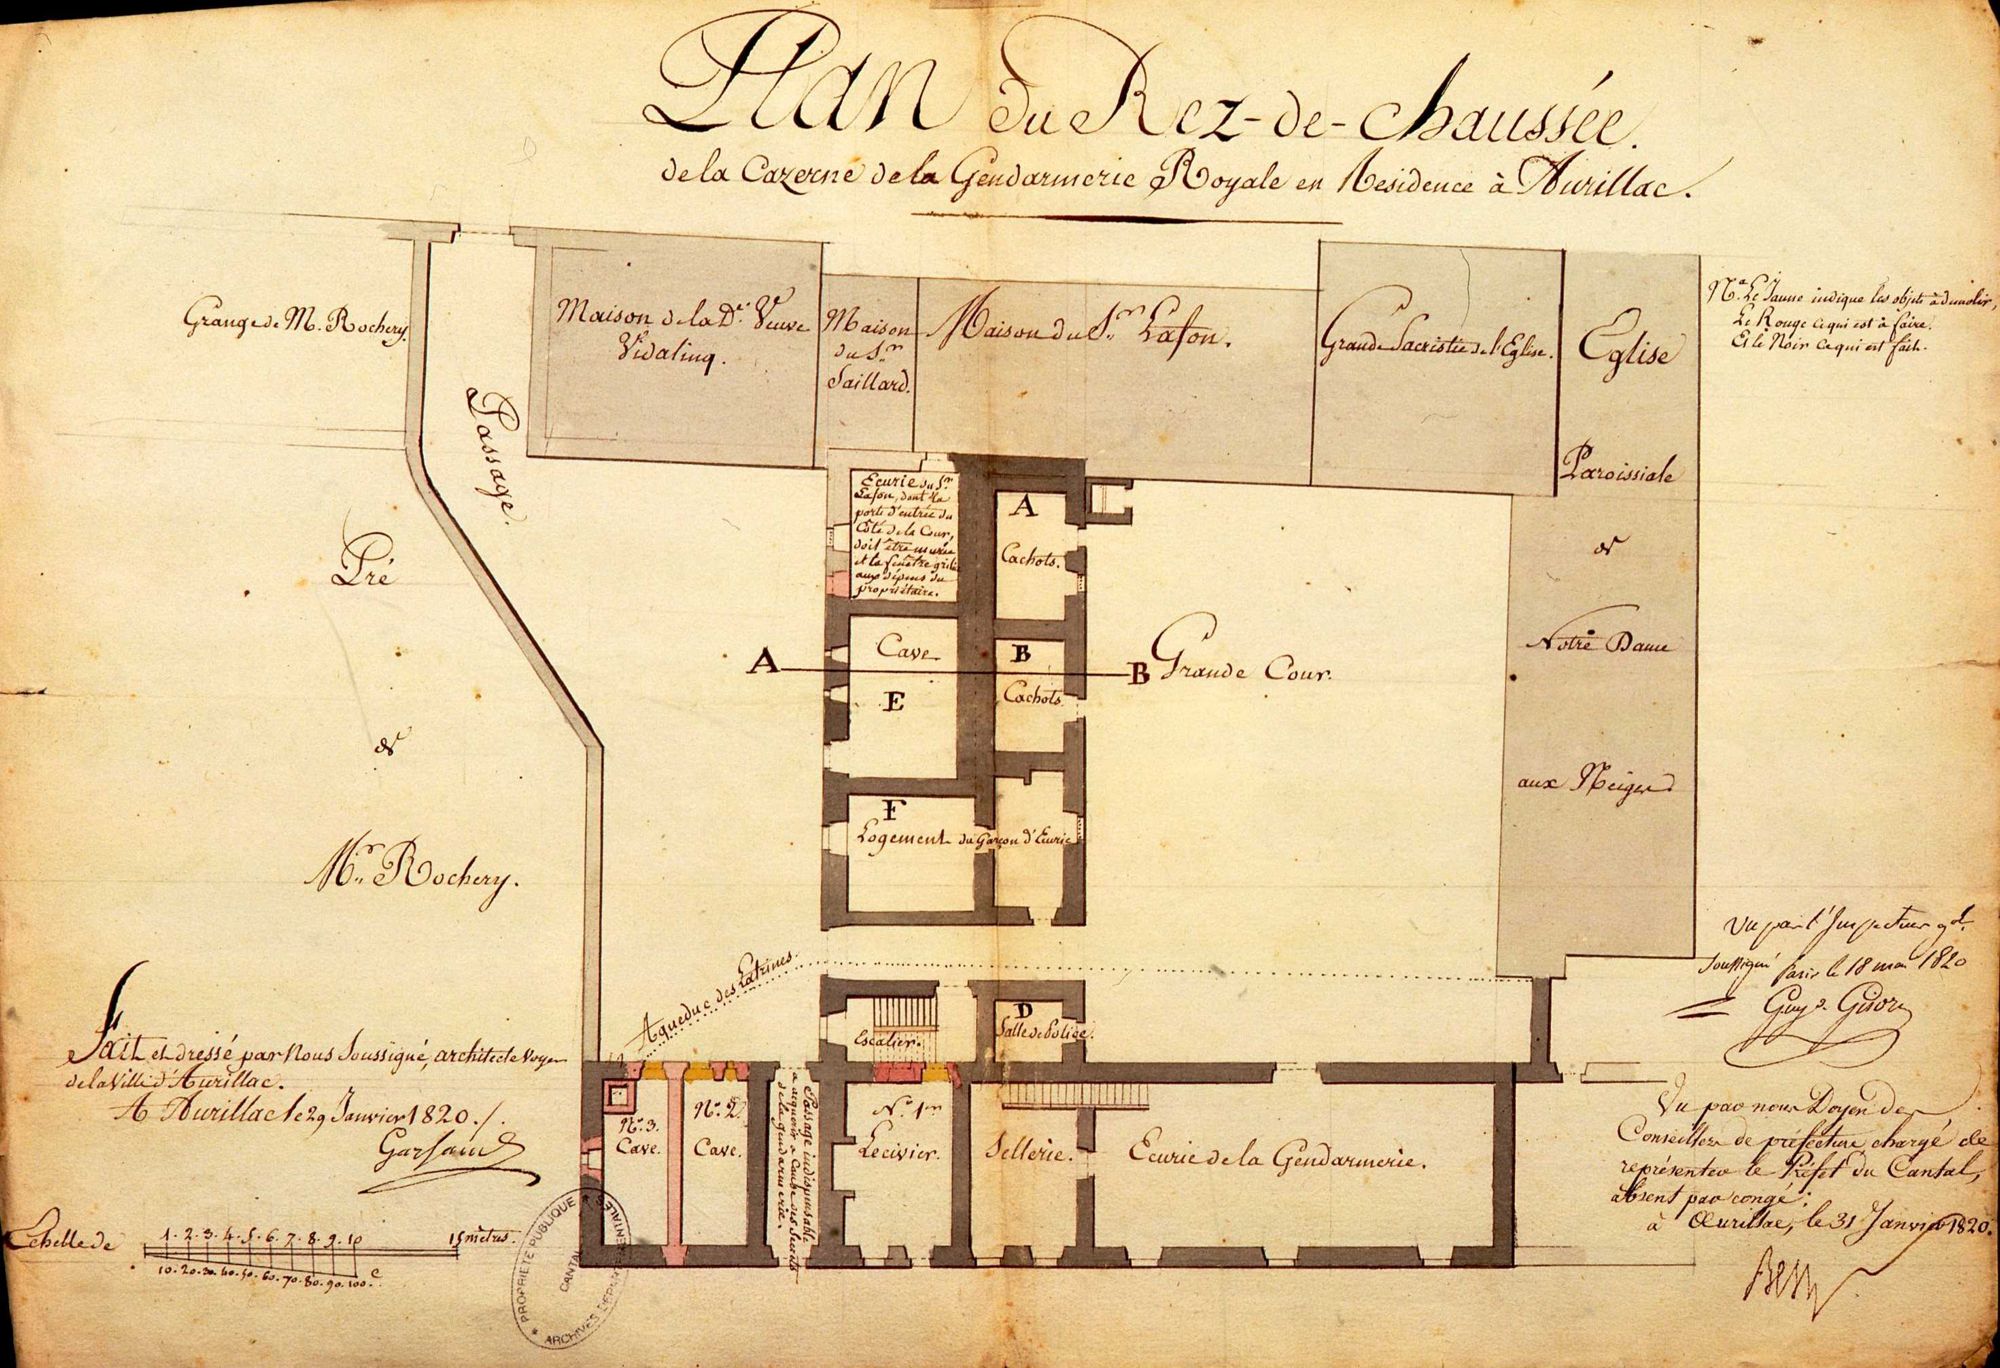 Plan du Rez-de-Chaussée.
de la Cazerne de la Gendarmerie Royale en Residence à Aurillac.
Grange de M. Rochery.
Passage.
Maison de la De. Veuve
Vidalinq.
Maison
du Sr.
Saillard.
Maison du Sr. Lafon.
Grande Sacristie de l'Eglise.
Eglise
Paroissiale
de
Notre Dame
aux Neiges
Na. Le Jaune indique les objets à demolir,
Le Rouge ce qui est à faire.
Et le Noir ce qui est fait.
Pré
de
Mr. Rochery.
Ecurie du Sr.
Lafon, dont la
porte d'entrée du
Côté de la Cour,
doit être murée
et la fenêtre grillée
aux dépens du
propriétaire.
A
Cachots.
Cave
E
B
Cachots.
A
B
Grande Cour.
F
Logement du Garçon d'Ecurie
Aqueduc des Latrines.
Escalier.
D
Salle de Police.
No. 3.
Cave.
No. 2.
Cave.
Passage indispensable
a acquerir a Cause des Secrets
de la gendarmerie.
No. 1er
Lecivier.
Sellerie.
Ecurie de la Gendarmerie.
Fait et dressé par Nous Soussigné, architecte Voyer
de la Ville d'Aurillac.
A Aurillac le 29 Janvier 1820.
Echelle de
1. 2. 3. 4. 5. 6. 7. 8. 9. 10
15 mètres.
10. 20. 30. 40. 50. 60. 70. 80. 90. 100. c.
PROPRIETE PUBLIQUE
CANTAL
ARCHIVES DEPARTEMENTALES
Vu par l'Inspecteur gal.
soussigné Paris le 18 mai 1820
Guy de Gisors
Vu par nous Doyen des
Conseillers de préfecture chargé de
représenter le Préfet du Cantal,
absent par congé;
à Aurillac, le 31 Janvier 1820.